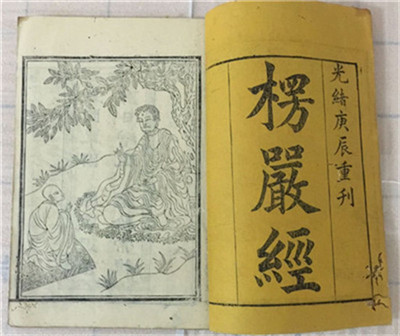 光緒庚辰重刊
楞嚴經